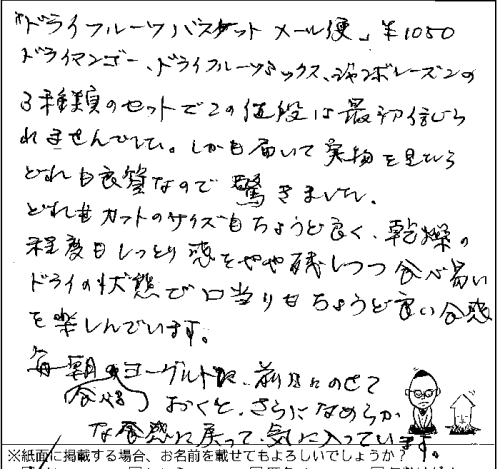 「ドライフルーツバスケット メール便」¥1050
ドライマンゴー、ドライフルーツミックス、ジャンボレーズンの
3種類のセットでこの値段は最初信じら
れませんでした。しかも届いて実物を見たら
どれも良質なので驚きました。
どれもカットのサイズもちょうど良く、乾燥の
程度もしっとり感をやや残しつつ食べ易い
ドライの状態で口当りもちょうど良い食感
を楽しんでいます。
毎朝食べるヨーグルトに、前日にのせて
おくと、さらになめらか
な食感に戻って気に入っています。
※紙面に掲載する場合、お名前を載せてもよろしいでしょうか?